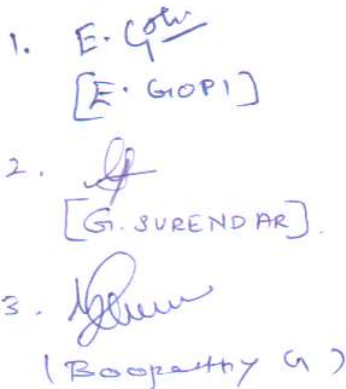 1. E. Gopi
[E. GOPI]
2.
[G. SURENDAR].
3.
(Boopathy G)